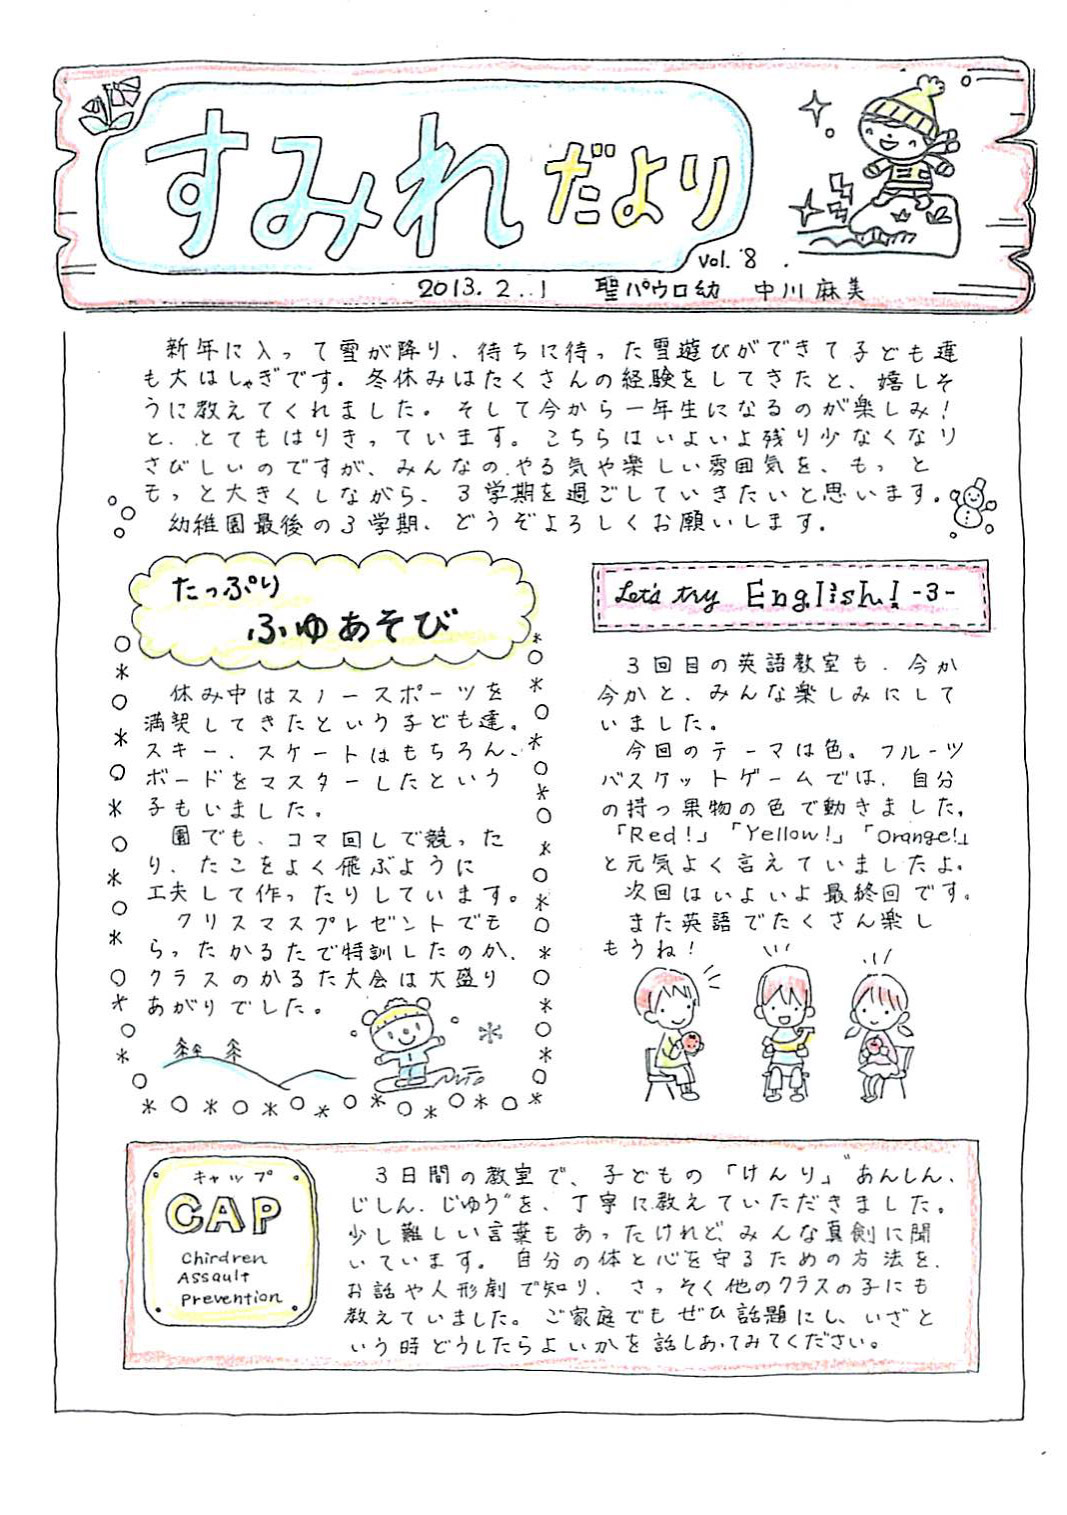 すみれだより
vol. 8
2013. 2. 1 聖パウロ幼 中川麻美
新年に入って雪が降り、待ちに待った雪遊びができて子ども達
も大はしゃぎです。冬休みはたくさんの経験をしてきたと、嬉しそ
うに教えてくれました。そして今から一年生になるのが楽しみ!
と、とてもはりきっています。こちらはいよいよ残り少なくなり
さびしいのですが、みんなの、やる気や楽しい雰囲気を、もっと
もっと大きくしながら、3学期を過ごしていきたいと思います。
幼稚園最後の3学期、どうぞよろしくお願いします。
たっぷり
ふゆあそび
休み中はスノースポーツを
満喫してきたという子ども達。
スキー、スケートはもちろん、
ボードをマスターしたという
子もいました。
園でも、コマ回しで競った
り、たこをよく飛ぶように
工夫して作ったりしています。
クリスマスプレゼントでも
らったかるたで特訓したのか、
クラスのかるた大会は大盛り
あがりでした。
Let's try English! -3-
3回目の英語教室も、今か
今かと、みんな楽しみにして
いました。
今回のテーマは色。フルーツ
バスケットゲームでは、自分
の持つ果物の色で動きました。
「Red!」「Yellow!」「Orange!」
と元気よく言えていましたよ。
次回はいよいよ最終回です。
また英語でたくさん楽し
もうね!
キャップ
CAP
Chirdren
Assault
Prevention
3日間の教室で、子どもの「けんり」"あんしん、
じしん、じゆう"を、丁寧に教えていただきました。
少し難しい言葉もあったけれど、みんな真剣に聞
いています。自分の体と心を守るための方法を、
お話や人形劇で知り、さっそく他のクラスの子にも
教えていました。ご家庭でもぜひ話題にし、いざと
いう時どうしたらよいかを話しあってみてください。